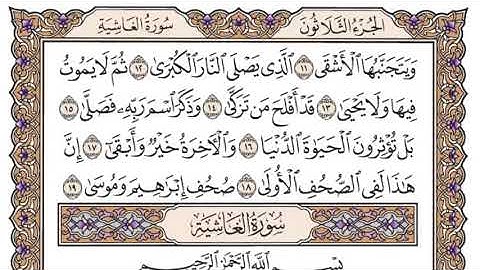 الجزء الثلاثون سورة الغاشية
وَيَتَجَنَّبُهَا ٱلْأَشْقَى ١١ ٱلَّذِى يَصْلَى ٱلنَّارَ ٱلْكُبْرَىٰ ١٢ ثُمَّ لَا يَمُوتُ
فِيهَا وَلَا يَحْيَىٰ ١٣ قَدْ أَفْلَحَ مَن تَزَكَّىٰ ١٤ وَذَكَرَ ٱسْمَ رَبِّهِۦ فَصَلَّىٰ ١٥
بَلْ تُؤْثِرُونَ ٱلْحَيَوٰةَ ٱلدُّنْيَا ١٦ وَٱلْـَٔاخِرَةُ خَيْرٌ وَأَبْقَىٰٓ ١٧ إِنَّ
هَـٰذَا لَفِى ٱلصُّحُفِ ٱلْأُولَىٰ ١٨ صُحُفِ إِبْرَٰهِيمَ وَمُوسَىٰ ١٩
سُورَةُ الغَاشِيَةِ
بِسْمِ ٱللَّهِ ٱلرَّحْمَـٰنِ ٱلرَّحِيمِ